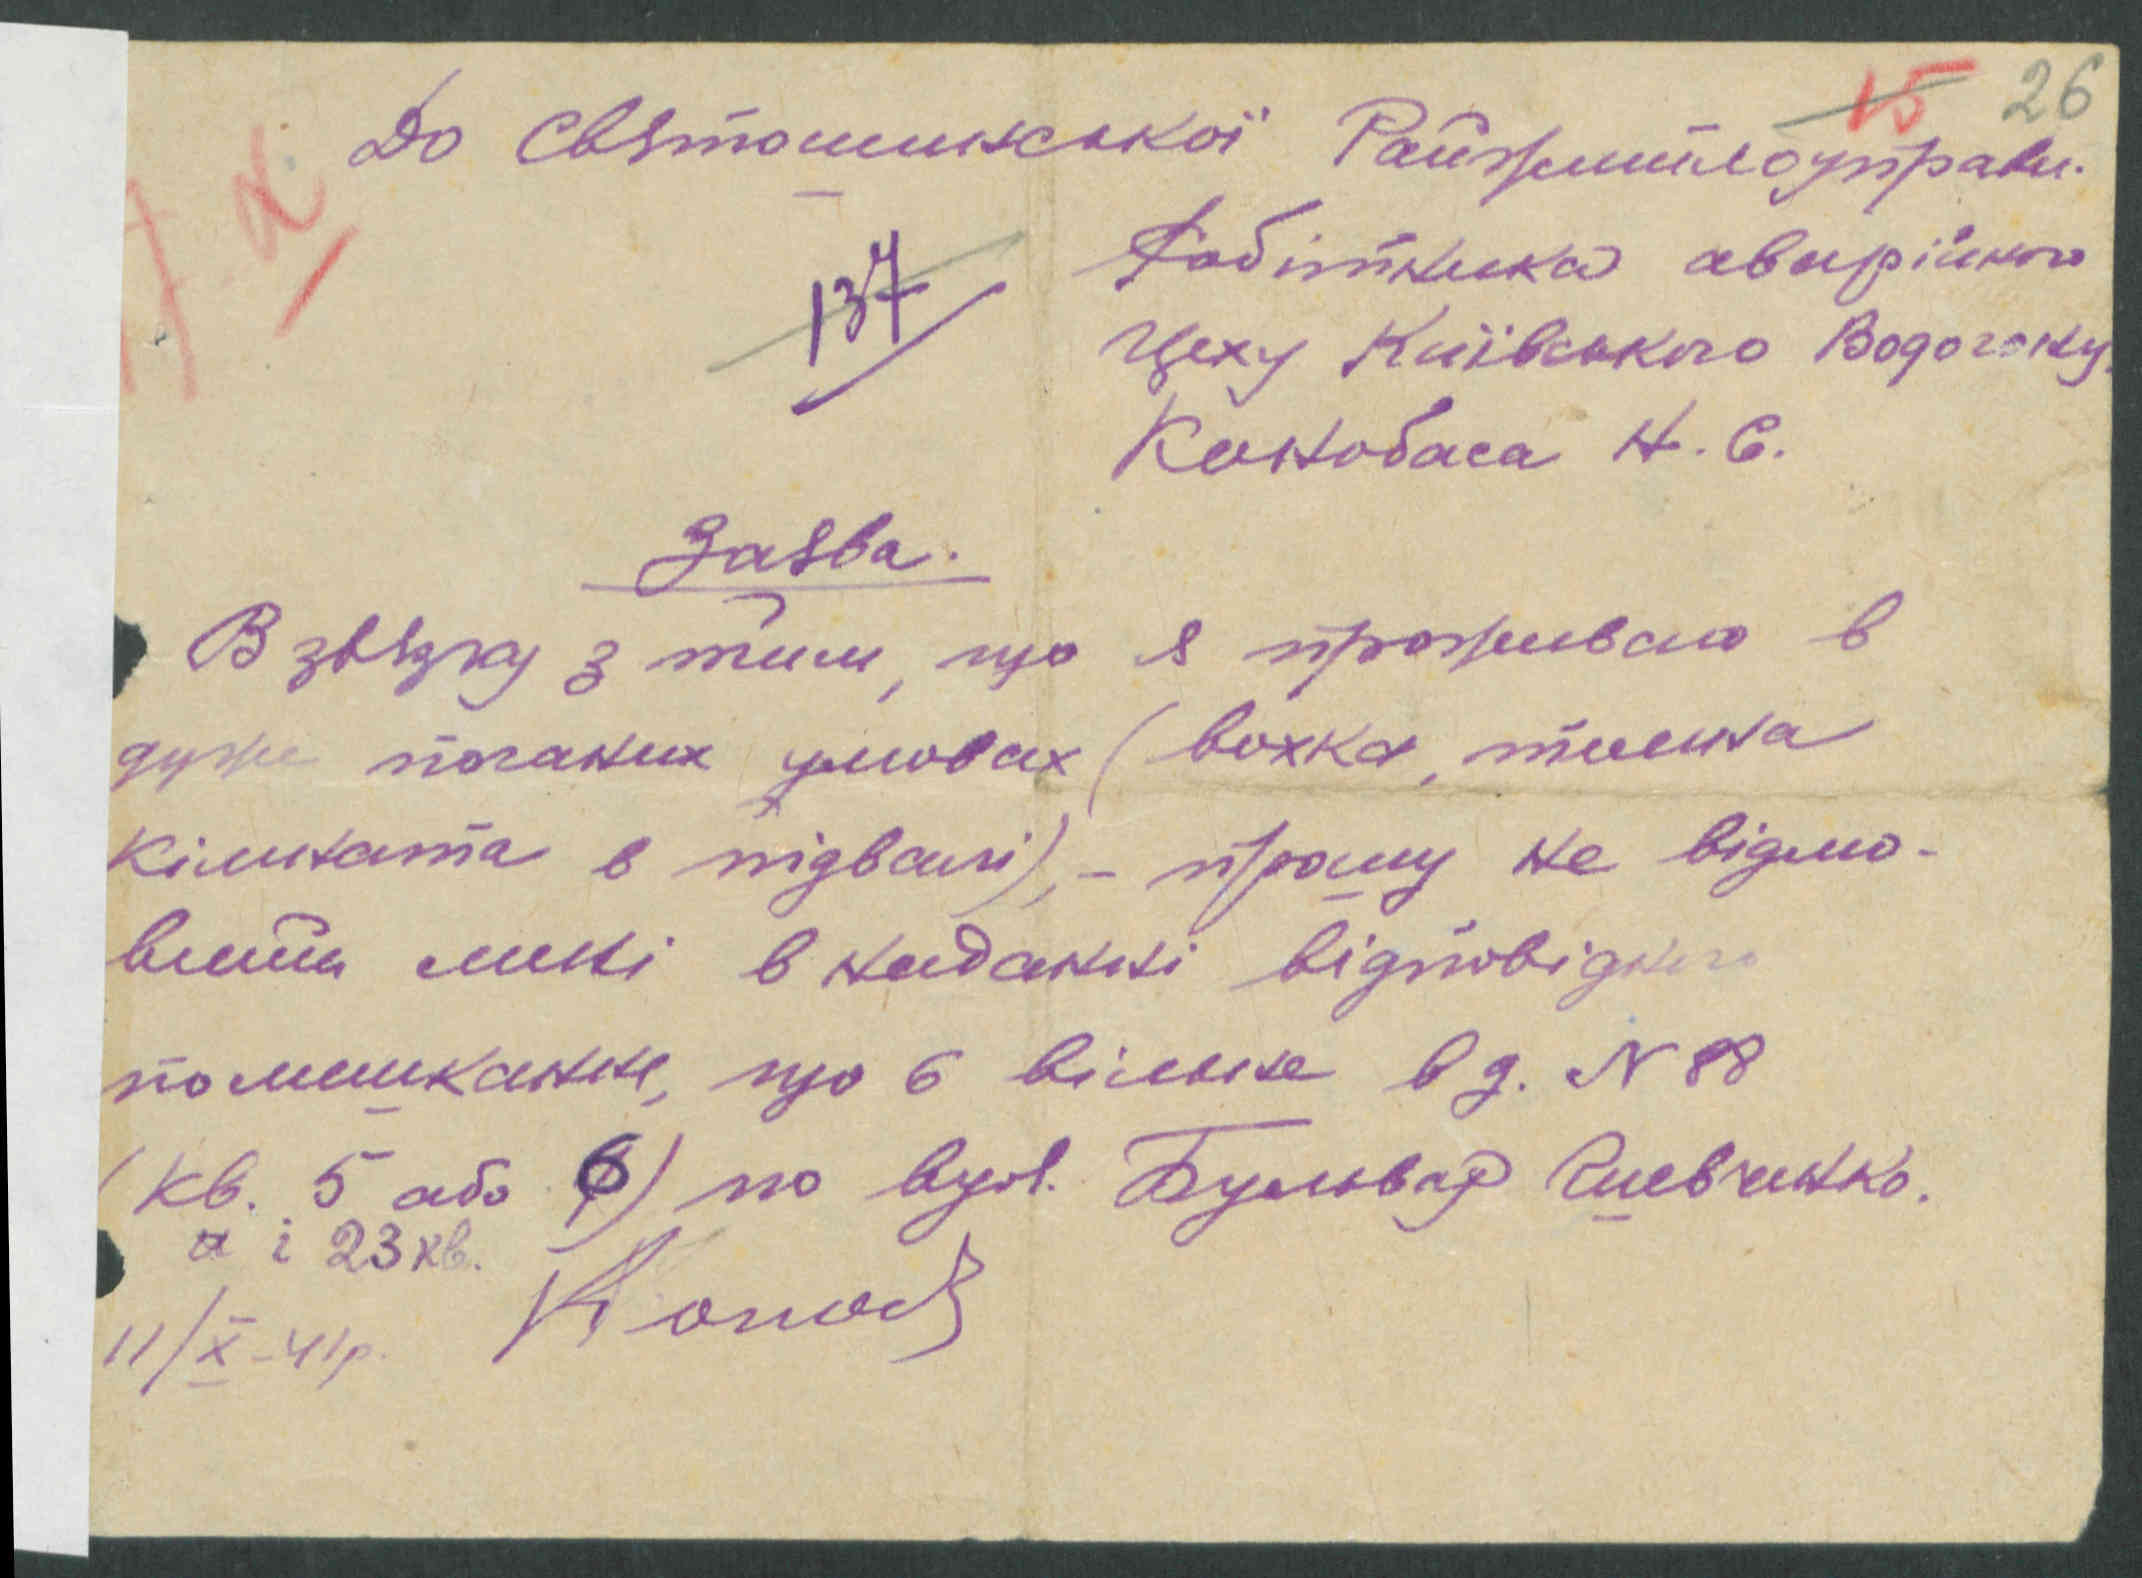 15 26
До Святошинської Райжитлоуправи.
Робітника аварійного
137
цеху Київського Водогону
Конобаса Н. Є.
Заява.
В звязку з тим, що я проживаю в
дуже поганих умовах (вохка, тісна
кімната в підвалі), – прошу не відмо-
вити мені в наданні відповідного
помешкання, що є вільне в д. № 88
(кв. 5 або 6) по вул. Бульвар Шевченко.
а і 23 кв.
11/X – 41 р.